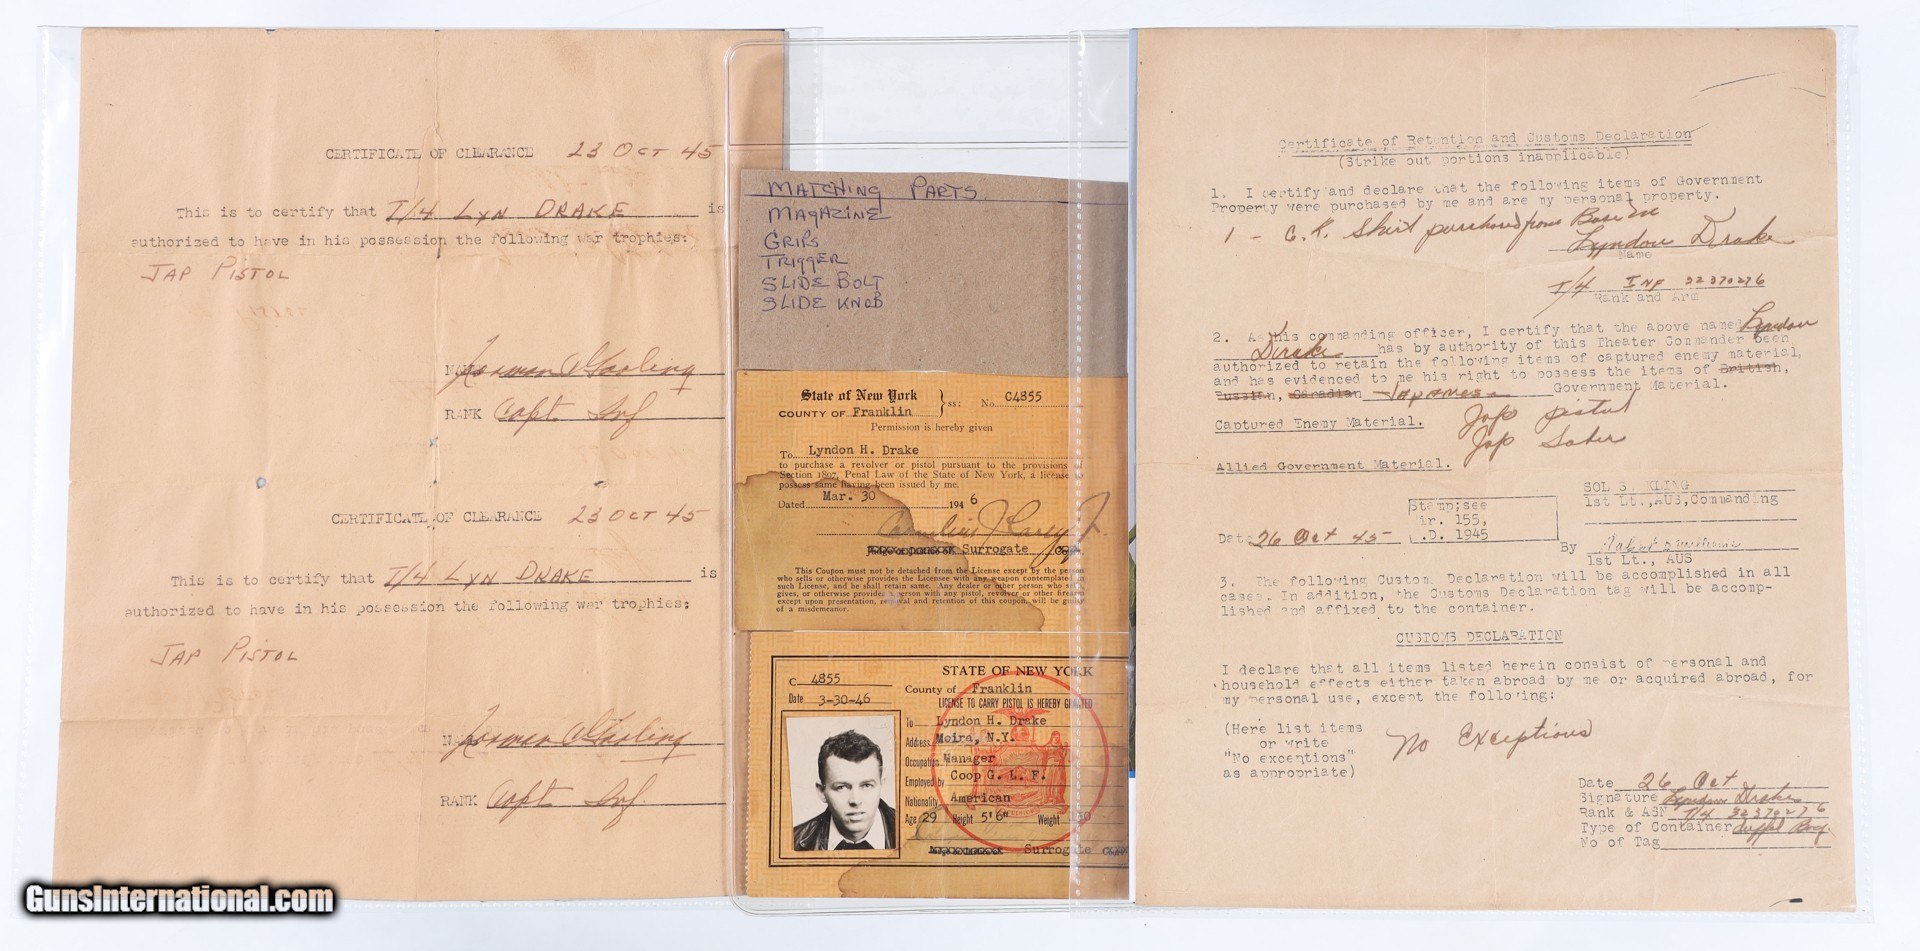 CERTIFICATE OF CLEARANCE 23 OCT 45
This is to certify that T/4 LYN DRAKE is
authorized to have in his possession the following war trophies:
JAP PISTOL
Norman O Garling
RANK Capt Inf
CERTIFICATE OF CLEARANCE 23 OCT 45
This is to certify that T/4 LYN DRAKE is
authorized to have in his possession the following war trophies:
JAP PISTOL
Norman O Garling
RANK Capt Inf.
MATCHING PARTS
MAGAZINE
GRIPS
TRIGGER
SLIDE BOLT
SLIDE KNOB
State of New York
COUNTY OF Franklin } ss: No. C4855
Permission is hereby given
To Lyndon H. Drake
to purchase a revolver or pistol pursuant to the provisions of
Section 1897, Penal Law of the State of New York, a license
possess same having been issued by me.
Dated Mar. 30 1946
Surrogate
This Coupon must not be detached from the License except by the person
who sells or otherwise provides the Licensee with any weapon contemplated
such License, and he shall retain same. Any dealer or other person who
gives, or otherwise provides person with any pistol, revolver or other
except upon presentation, removal and retention of this coupon, will be
of a misdemeanor.
STATE OF NEW YORK
C 4855
County of Franklin
Date 3-30-46
LICENSE TO CARRY PISTOL IS HEREBY GRANTED
To Lyndon H. Drake
Address Moira, N.Y.
Occupation Manager
Employed by Coop G. L. F.
Nationality American
Age 29 Height 5'6" Weight
Surrogate
Certificate of Retention and Customs Declaration
(Strike out portions inapplicable)
1. I certify and declare that the following items of Government
Property were purchased by me and are my personal property.
1 - Shirt purchased from Base
Lyndon Drake
Name
T/4 INF 32370276
Rank and Arm
2. As his commanding officer, I certify that the above named Lyndon
Drake has by authority of this Theater Commander been
authorized to retain the following items of captured enemy material,
and has evidenced to me his right to possess the items of British,
Russian, Canadian Japanese Government Material.
Captured Enemy Material. Jap pistol
Jap Saber
Allied Government Material.
SOL S. KLING
1st Lt., AUS, Commanding
Stamp; see
ir. 155,
.D. 1945
Date 26 Oct 45
By
1st Lt., AUS
3. The following Custom Declaration will be accomplished in all
cases. In addition, the Customs Declaration tag will be accomp-
lished and affixed to the container.
CUSTOMS DECLARATION
I declare that all items listed herein consist of personal and
household effects either taken abroad by me or acquired abroad, for
my personal use, except the following:
(Here list items
or write
"No exceptions"
as appropriate)
No Exceptions
Date 26 Oct
Signature Lyndon Drake
Rank & ASN T/4 32370276
Type of Container Duffel Bag
No of Tag
GunsInternational.com